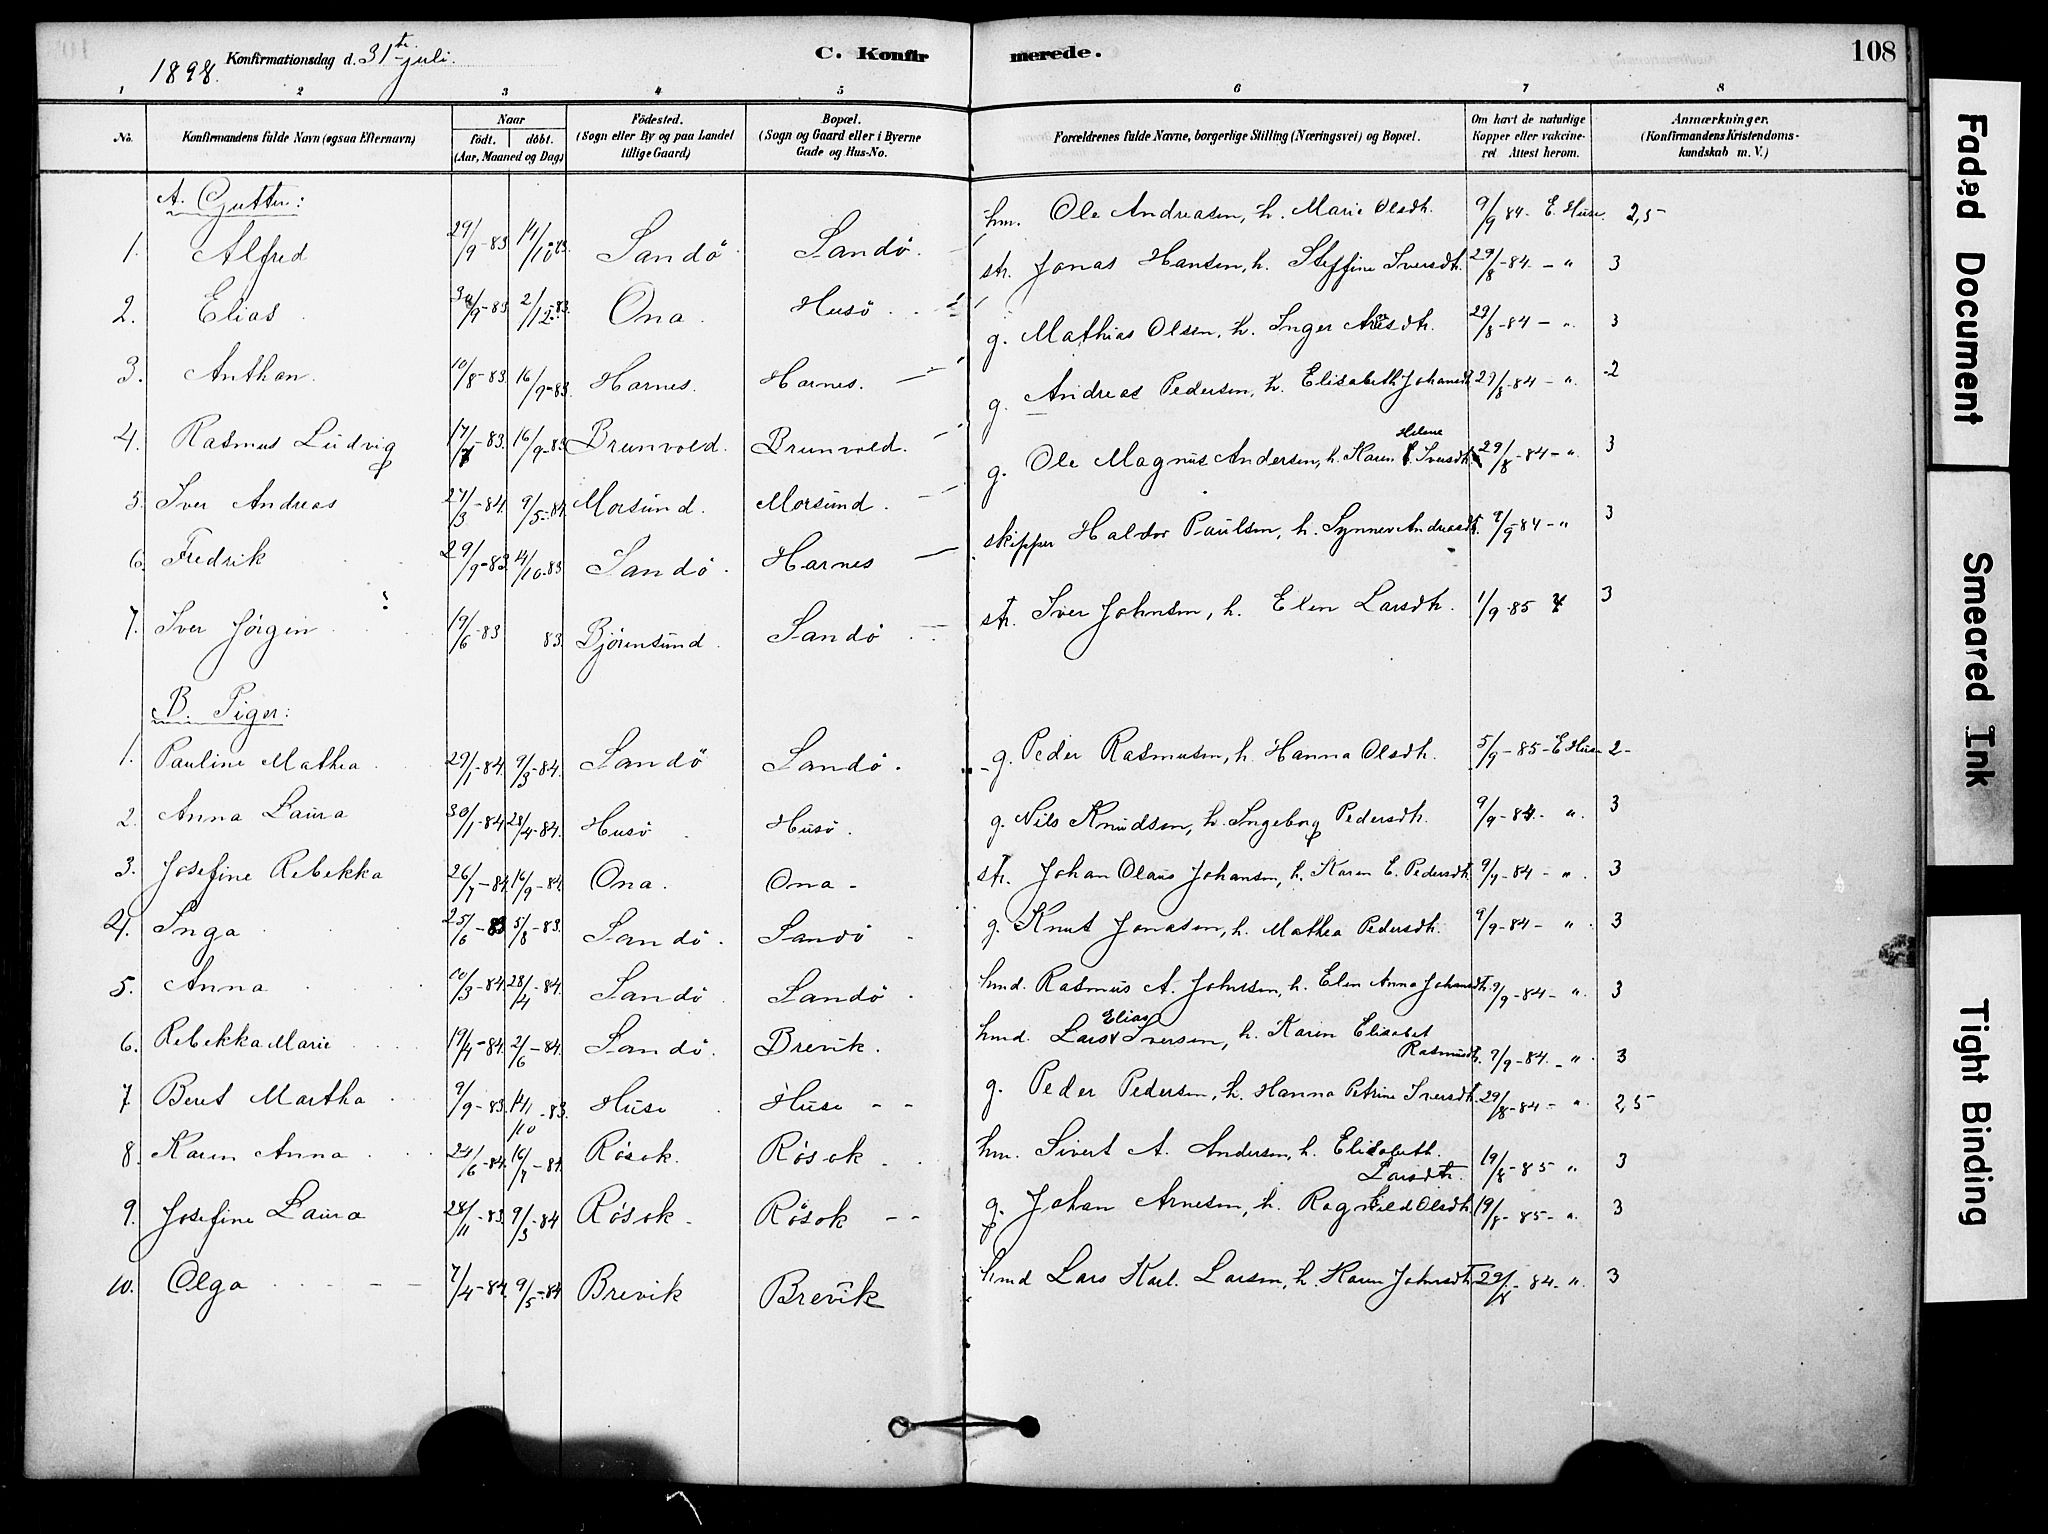 1898. Konfirmationsdag d. 31te juli. C. Konfirmerede. 108
1 2 3 4 5 6 7 8
No. Konfirmandens fulde Navn (ogsaa Efternavn) Naar født. døbt. (Aar, Maaned og Dag) Fødested. (Sogn eller By og paa Landet tillige Gaard) Bopæl. (Sogn og Gaard eller i Byerne Gade og Hus-No. Forældrenes fulde Navne, borgerlige Stilling (Næringsvei) og Bopæl. Om havt de naturlige Kopper eller vakcineret. Attest herom. Anmærkninger. (Konfirmandens Kristendomskundskab m. V.)
A. Gutter:
1. Alfred 29/9-83 14/10-83 Sandø Sandø. hm. Ole Andreasen, h. Marie Olsdtr. 9/9 84- E. Huse. 2,5-
2. Elias 30/9-83 2/12-83 Ona Husø. str. Jonas Hansen, h. Steffine Iversdtr. 29/8-84. - " 3
3. Anthon. 10/8-83. 16/9-83. Harnes. Harnes. g. Mathias Olsen, h. Inger dtr. 29/8-84 - ". 3
4. Rasmus Ludvig 17/7-83. 16/9-83 Brunvold. Brunvold. g. Andreas Pedersen, h. Elisabeth Johansdt 29/8-84 - ". 2
5. Iver Andreas 27/3-84. 9/5-84. Morsund. Morsund. g. Ole Magnus Andersen, h. Karen Helene Iversdtr. 29/8-84-". 3
6. Fredrik 29/9-83 14/10-83 Sandø. Harnes skipper Haldor Paulsen, h. Synnev Andreasdt. 9/9-84-" 3
7. Iver Jørgen 19/6-83 83. Bjørensund. Sandø str. Iver Johnsen, h. Elen Larsdtr. 1/9-85 3
B. Piger:
1. Pauline Mathea 29/1-84. 9/3-84. Sandø Sandø. g. Peder Rasmusen, h. Hanna Olsdtr. 5/9-85-E Huse 2-
2. Anna Laura 30/1-84 28/4-84. Husø Husø. g. Nils Knudsen, h. Ingeborg Pedersdtr. 9/9-84. ". 3
3. Josefine Rebekka 26/7-84. 16/9-84. Ona. Ona- str. Johan Olaus Johansen, h. Karen E. Pedersdtr. 9/9-84 - ". 3
4. Inga 25/6-83 5/8-83. Sandø. Sandø g. Knut Jonasen, h. Mathea Pedersdtr. 9/9-84- " . 3
5. Anna 10/3-84. 28/4-84. Sandø Sandø. hmd. Rasmus A. Johnsen, h. Elen Anna Johansdt. 9/9-84- ". 3
6. Rebekka Marie 19/4-84. 2/6-84. Sandø. Brevik. hmd. Lars Elias Iversen, h. Karen Elisabet Rasmusdt. 9/9-84. - ". 3
7 Beret Martha 9/9-83. 14/10-83. Huse Huse - - g. Peder Pedersen, h. Hanna Petrine Iversdtr. 29/8-84- ". 2,5-
8. Karen Anna 24/6-84. 16/7-84. Røsok. Røsok hm. Sivert A. Andersen, h. Elisabeth Larsdtr. 19/8-85 " 3
9. Josefine Laura 28/11-83. 9/3-84 Røsok- Røsok -- g. Johan Arnesen, h. Ragnhild Olsdtr 19/8-85-". 3
10. Olga 7/4-84. 9/5-84 Brevik Brevik hmd Lars Karl. Larsen, h. Karen Johnsdtr 29/8-84-". 3
Faded Document
Smeared Ink
Tight Binding